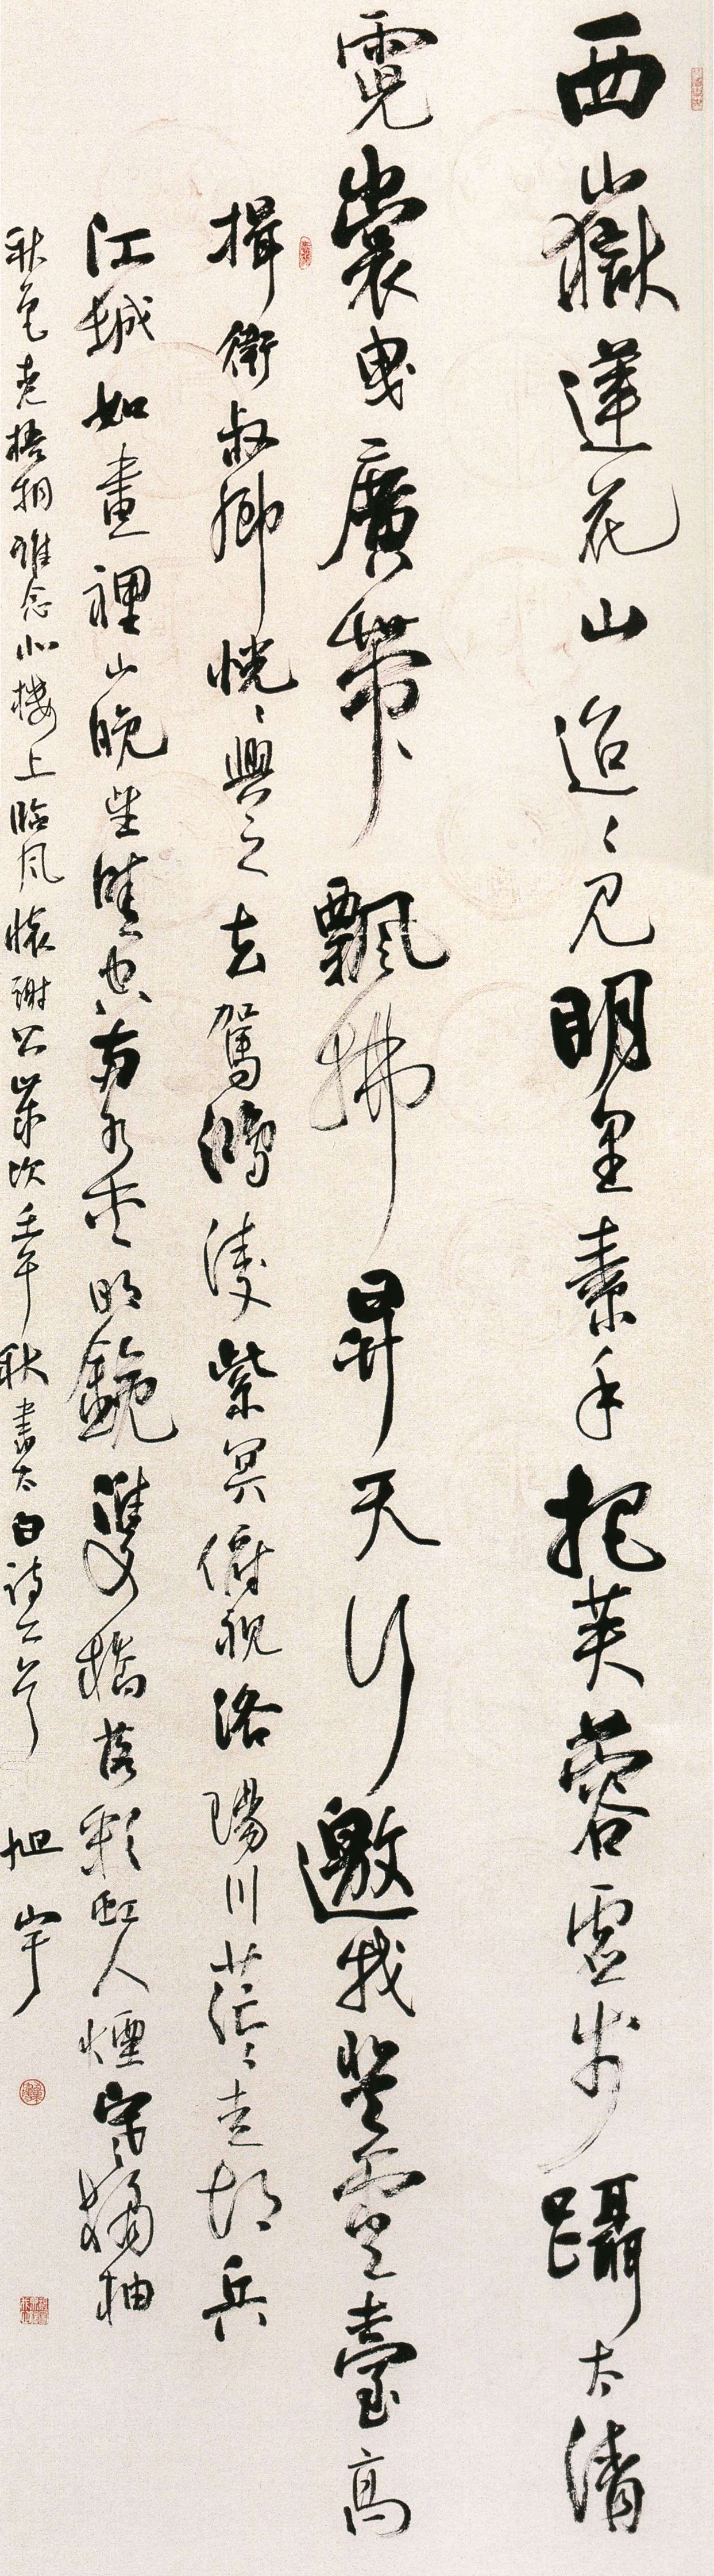 西嶽蓮花山迢〻見明星素手把芙蓉虛步躡太清
霓裳曳廣帶飄拂昇天行邀我登雲臺高
揖衛叔卿恍〻與之去駕鴻淩紫冥俯視洛陽川茫〻走胡兵
江城如畫裡山晚望晴空兩水夾明鏡雙橋落彩虹人煙寒橘柚
秋色老梧桐誰念北樓上臨風懷謝公歲次壬午秋書太白詩二首 旭宇